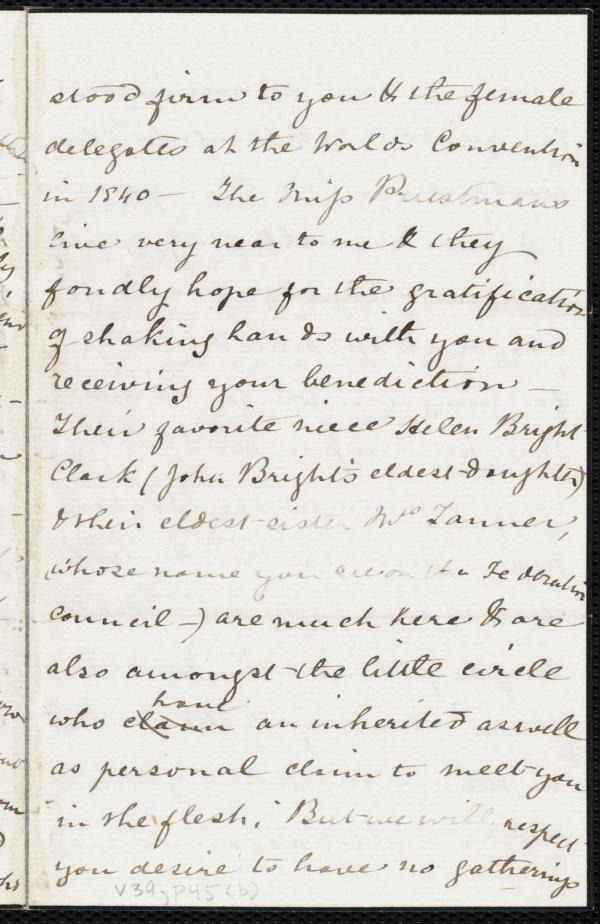 stood firm to you & the female
delegates at the Worlds Convention
in 1840 — The Miss Priestmans
live very near to me & they
fondly hope for the gratification
of shaking hands with you and
receiving your benediction —
Their favorite niece Helen Bright
Clark (John Bright's eldest daughter)
& their eldest sister Mrs Tanner,
(whose name you see on the Federation
council —) are much here & are
also amongst the little circle
have
who claim an inherited as well
as personal claim to meet you
in the flesh. But we will respect
you desire to have no gatherings
V39, P45 (b)